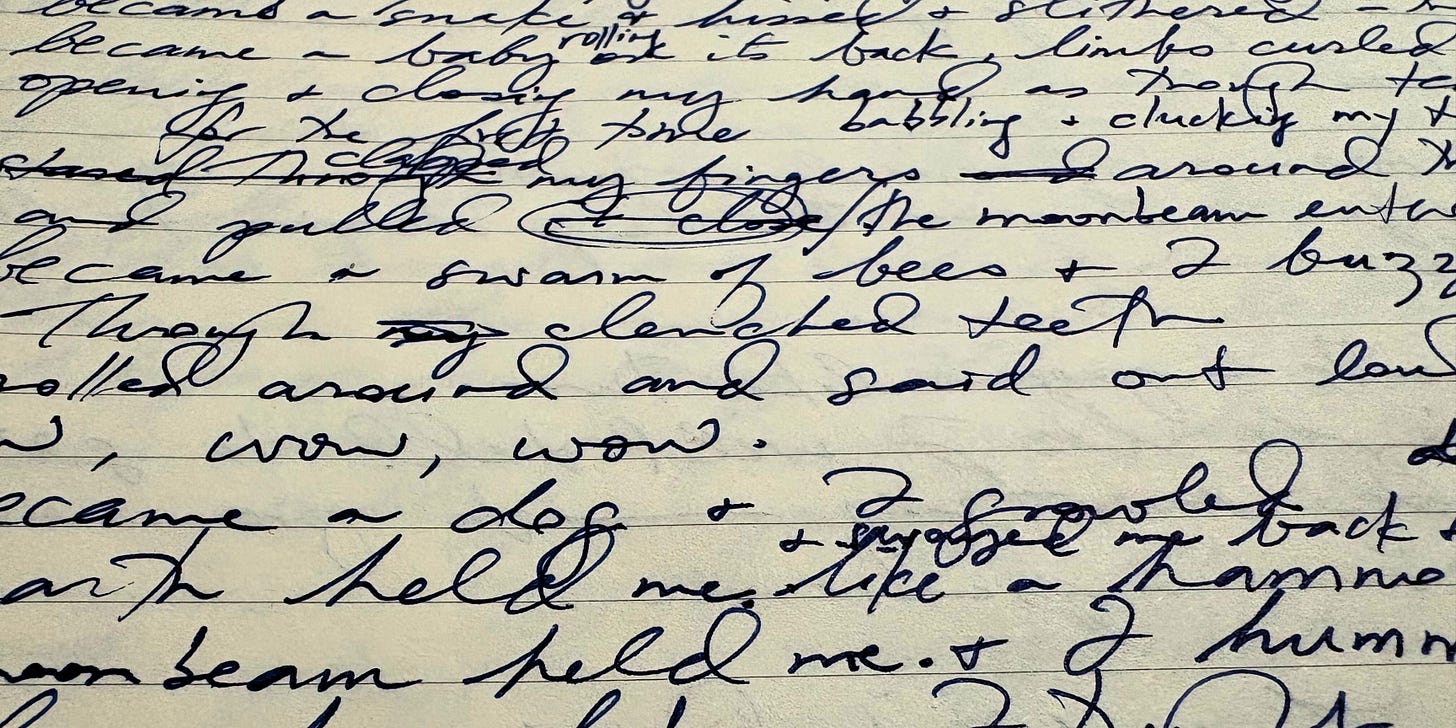 became a snake & hissed & slithered -
rolling
became a baby on its back, limbs curled
opening & closing my hand as though
for the first time babbling & clucking my
clasped
through my fingers around
and pulled & close / the moonbeam
became a swarm of bees & I buzz
Through my clenched teeth
rolled around and said out loud
w, wow, wow.
ecame a dog & I growled
& me back &
arth held me. like a hammo
moonbeam held me. & I humm